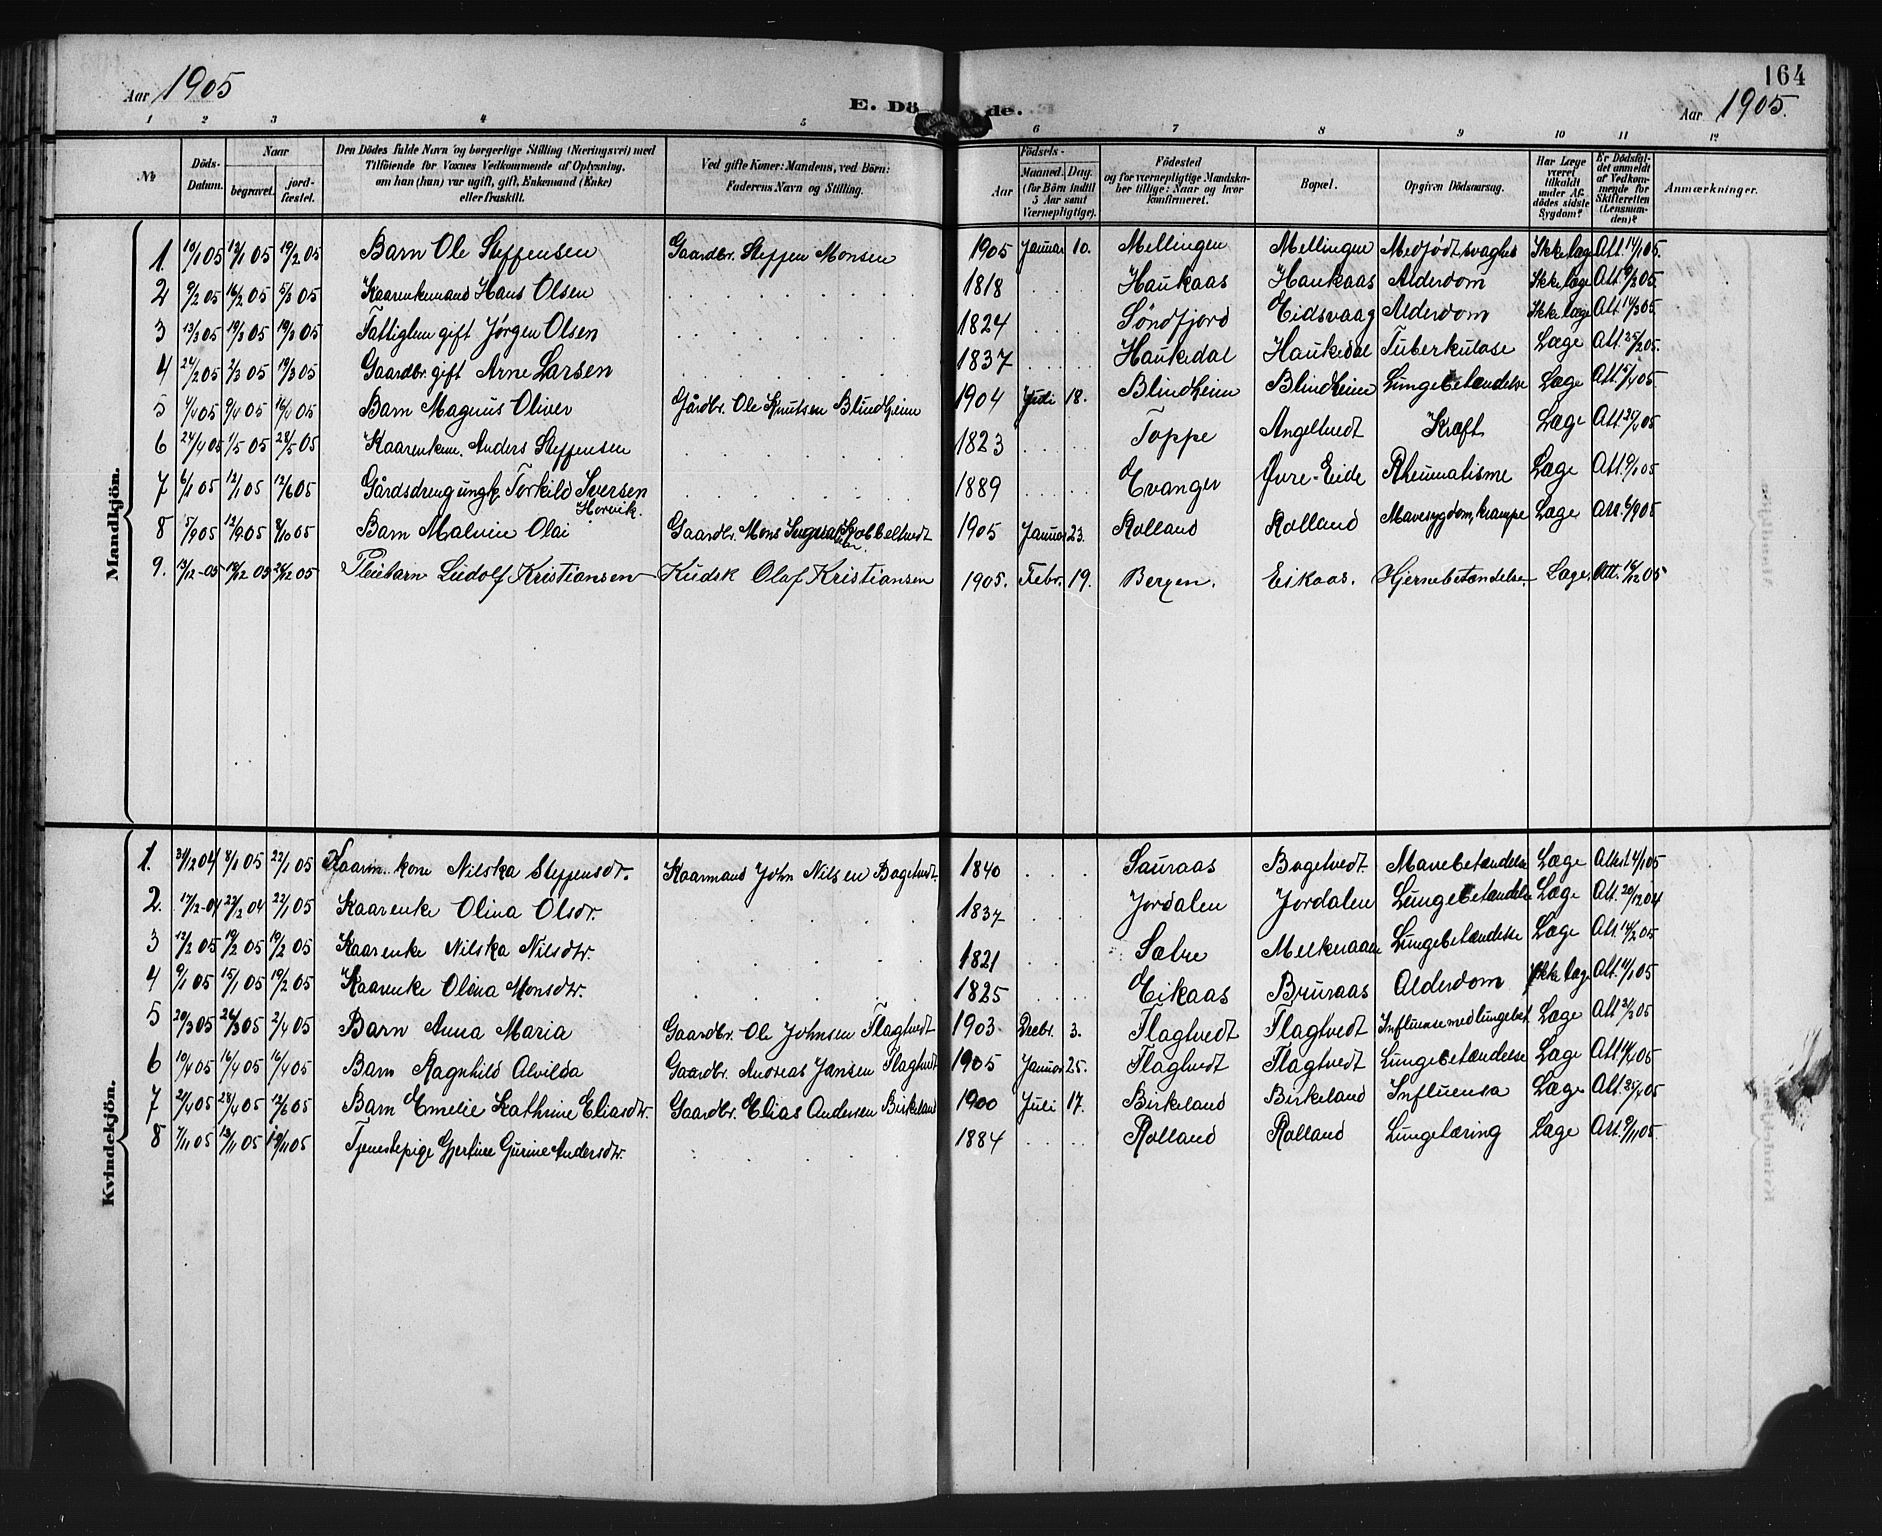 164
Aar 1905
E. Dö de.
Aar 1905.
1 2 3 4 5 6 7 8 9 10 11 12
No
Döds-Datum.
Naar
begravet.
jord-fæstet.
Den Dödes fulde Navn og borgerlige Stilling (Næringsvei) med
Tilföiende for Voxnes Vedkommende af Oplysning,
om han (hun) var ugift, gift, Enkemand (Enke)
eller fraskilt.
Ved gifte Koner: Mandens, ved Börn:
Faderens Navn og Stilling.
Födsels-
Aar
Maaned. Dag.
(for Börn indtil
5 Aar samt
Værnepligtige).
Födested
og for værnepligtige Mandska-
ber tillige: Naar og hvor
konfirmeret.
Bopæl.
Opgiven Dödsaarsag.
Har Læge
været
tilkaldt
under Af-
dödes sidste
Sygdom?
Er Dödsfal-
det anmeldt
af Vedkom-
mende for
Skifteretten
(Lensman-
den)?
Anmærkninger.
Mandkjön.
1. 10/1 05 12/1 05 19/2 05 Barn Ole Steffensen Gaardbr. Steffen Monsen 1905 Januar 10. Mellingen Mellingen Medfödt svaghed Ikke læge Att. 14/1 05.
2 9/2 05 16/2 05 5/3 05 Kaarenkemand Hans Olsen 1818 Haukaas Haukaas Alderdom Ikke læge Att 9/2 05.
3 13/3 05 19/3 05 19/3 05 Fattiglem gift Jørgen Olsen 1824 Söndfjord Eidsvaag Alderdom Ikke læge Att 14/3 05.
4 24/2 05 2/3 05 19/3 05 Gaardbr. gift Arne Larsen 1837 Haukedal Haukedal Tuberkulose Læge Att. 25/2 05.
5 1/4 05 9/4 05 16/4 05 Barn Magnus Oliver Gårdbr. Ole Knutsen Blindheim 1904 Juli 18. Blindheim Blindheim Lungebetændelse Læge Att 5/4 05.
6 24/4 05 1/5 05 28/5 05 Kaarenkem. Anders Steffensen 1823 Toppe Angeltvedt Kræft Læge Att 25/4 05
7 6/1 05 12/1 05 12/6 05 Gårdsdreng ungk. Torkild Iversen
Horvik. 1889 Evanger Øvre-Eide Rheumatisme Læge Att. 9/1 05
8 5/9 05 12/9 05 8/10 05 Barn Malvin Olai Gaardbr. Mons 1905 Januar 23. Rolland Rolland Mavesygdom, krampe Læge Att. 6/9 05
9. 13/12-05 18/12 05 26/12 05 Pleiebarn Ludolf Kristiansen Kudsk Olaf Kristiansen 1905. Febr. 19. Bergen. Eikaas. Hjernebetændelse. Læge. Att. 16/12 05
Kvindekjön.
1. 31/12 04 8/1 05 22/1 05 Kaarm. kone Nilska Steffensdt. Kaarmand John Nilsen Bogetvedt. 1840 Sauraas Bogetvedt. Mavebetændelse Læge Attest 4/1 05
2. 17/12-04 22/12 04 22/1 05 Kaarenke Olina Olsdr. 1837 Jordalen Jordalen Lungebetændelse Læge Att. 20/12 04
3 12/2 05 19/2 05 19/2 05 Kaarenke Nilska Nilsdtr. 1821 Sætre Melkeraaen Lungebetændelse Læge Att 14/2 05.
4 9/1 05 15/1 05 19/2 05 Kaarenke Olena Monsdtr. 1825 Eikaas Bruraas Alderdom Ikke læge Att. 11/1 05
5 20/3 05 26/3 05 2/4 05 Barn Anna Maria Gaardbr. Ole Johnsen Flagtvedt 1903. Decbr. 3. Flagtvedt Flagtvedt Influense med lungebet. Læge Att 05
6 10/4 05 16/4 05 16/4 05 Barn Ragnhild Alvilda Gaardbr. Andreas Jansen Flagtvedt 1905 Januar 25. Flagtvedt Flagtvedt Lungebetændelse Læge Att 11/4 05
7 21/4 05 28/4 05 12/6 05 Barn Emelie Kathrine Eliasdtr. Gaardbr. Elias Andersen Birkeland 1900 Juli 17. Birkeland Birkeland Influensa Læge Att. 25/4 05
8 7/11 05 13/11 05 19/11 05 Tjenestepige Gjertine Gurine Andersdtr. 1884 Rolland Rolland Lungetæring Læge Att. 9/11 05.